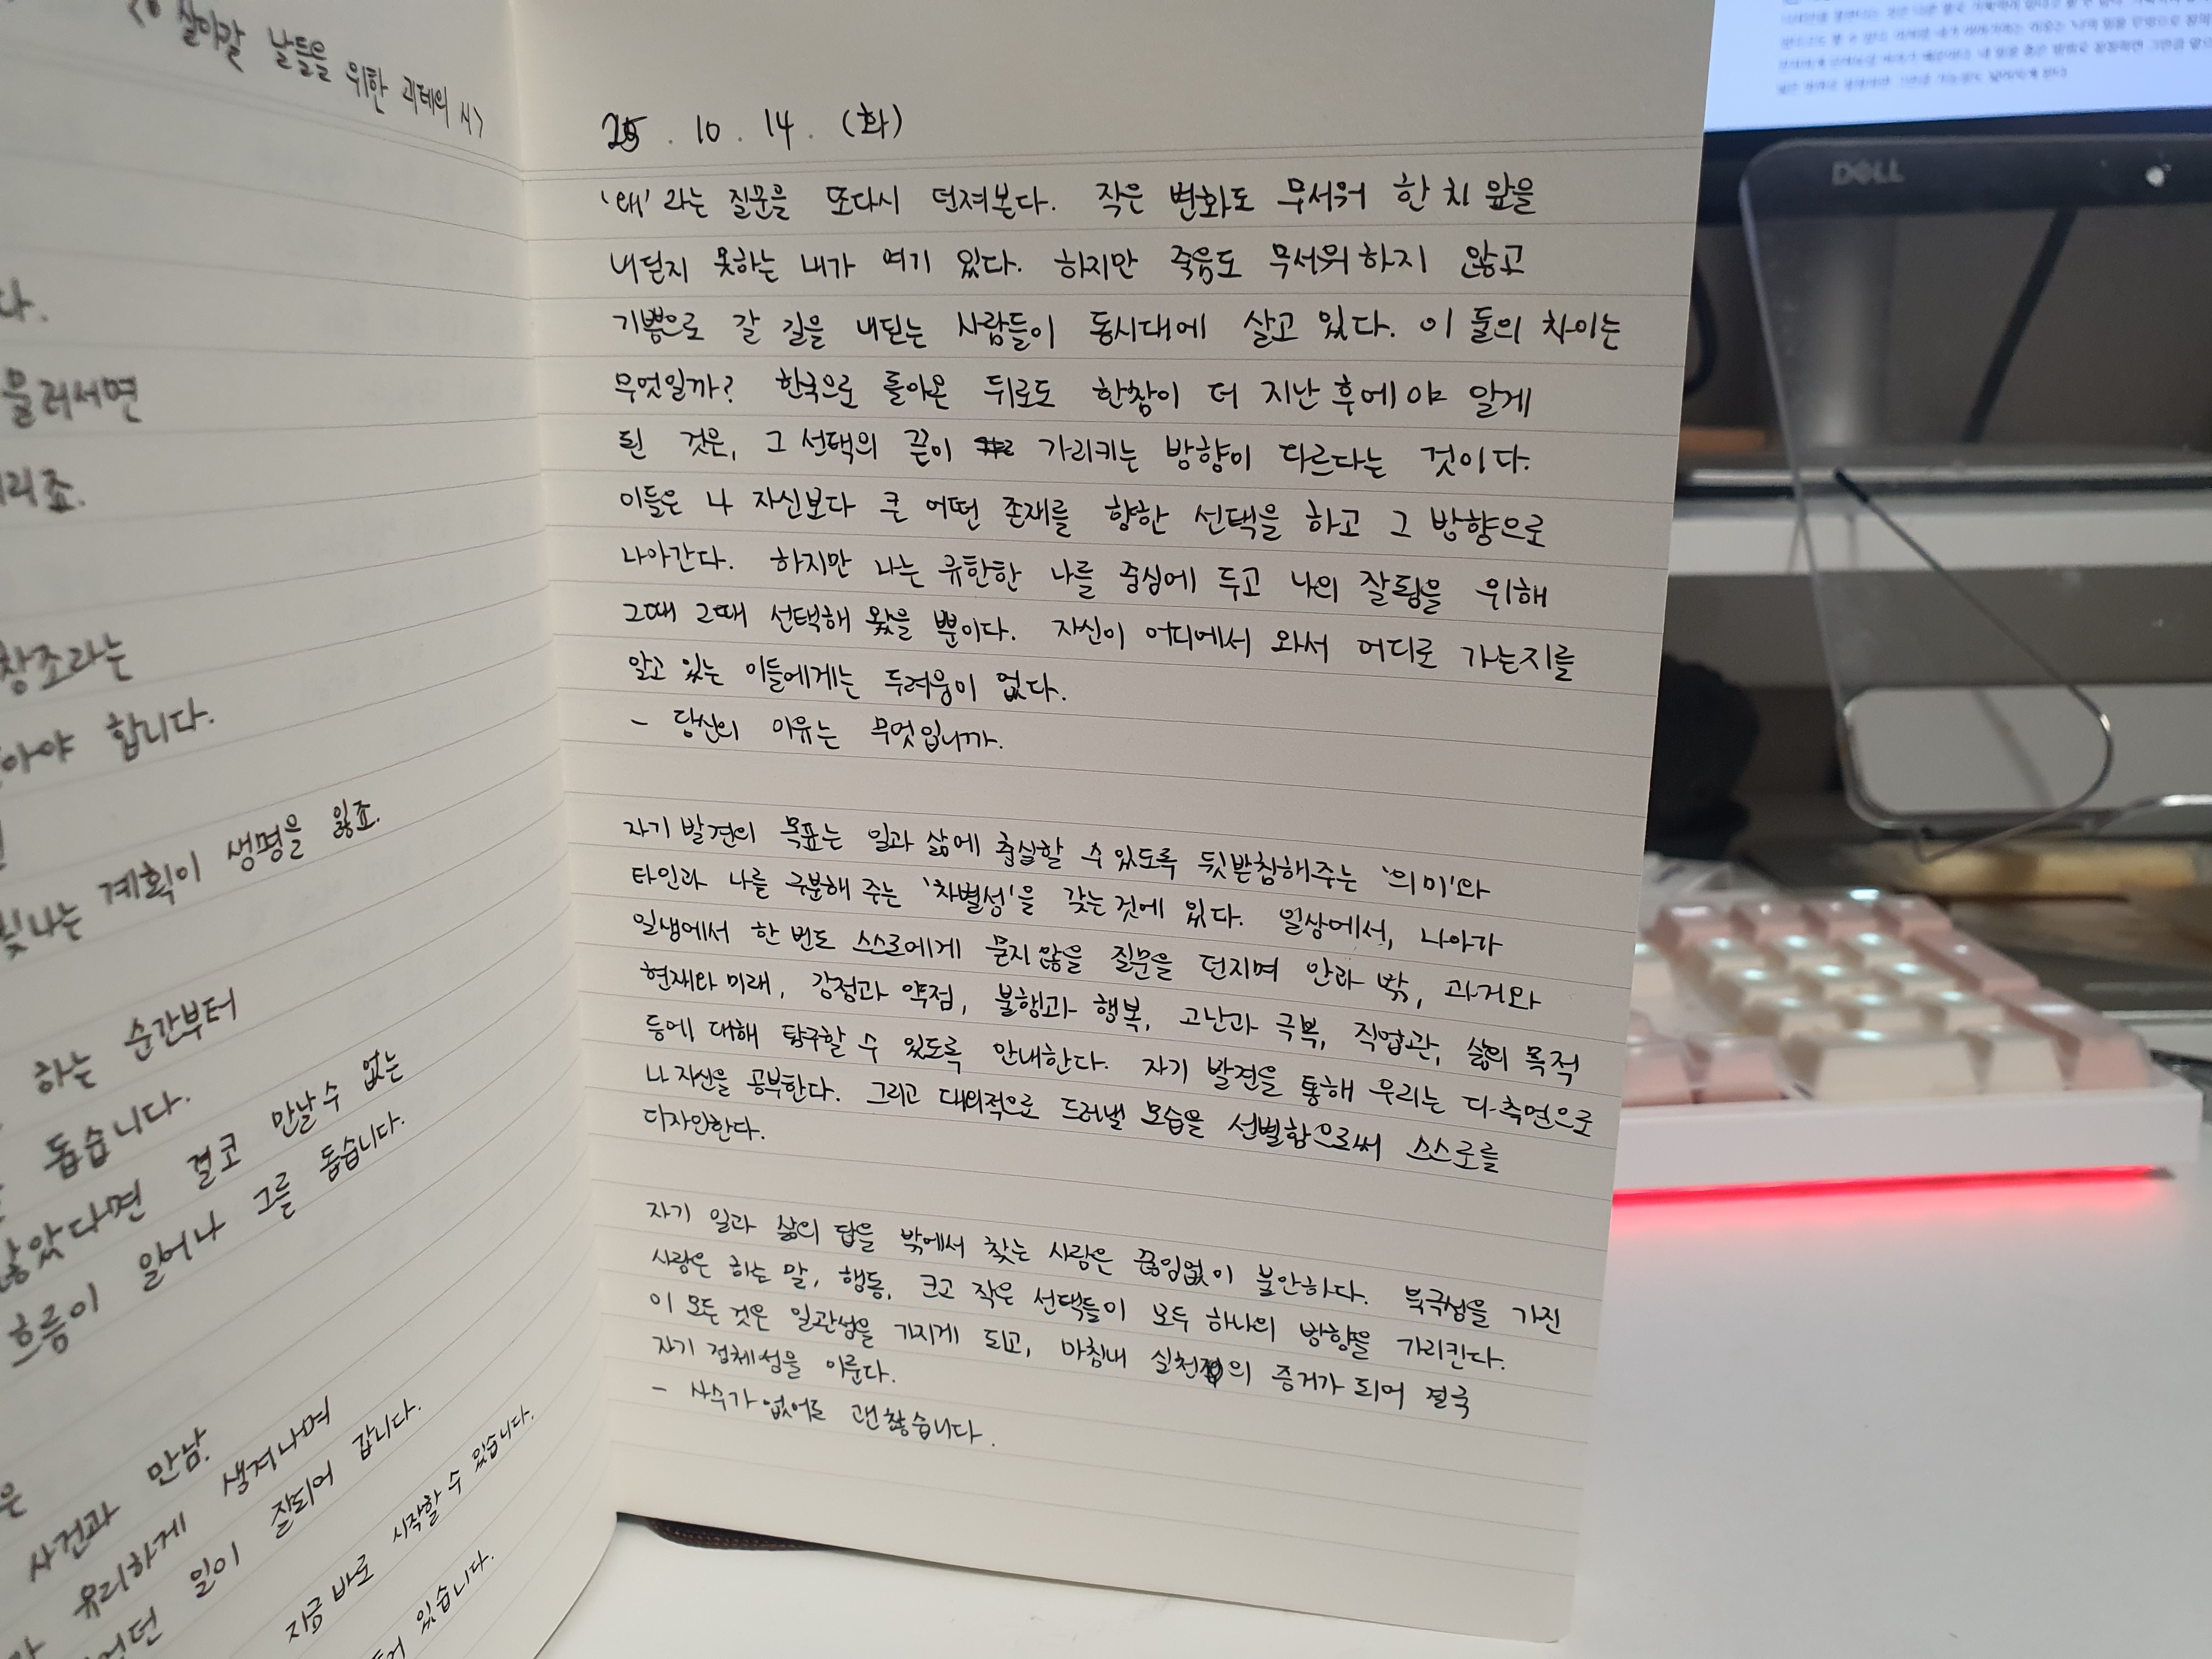 살아갈 날들을 위한 괴테의 시>
다.
물러서면
리죠.
창조라는
아야 합니다.
빛나는 계획이 생명을 잃죠.
하는 순간부터
돕습니다.
않았다면 결코 만날 수 없는
흐름이 일어나 그를 돕습니다.
은
사건과 만남.
유리하게 생겨나며
던 일이 잘되어 갑니다.
지금 바로 시작할 수 있습니다.
있습니다.
25. 10. 14. (화)
'왜'라는 질문을 또다시 던져본다. 작은 변화도 무서워 한 치 앞을
내딛지 못하는 내가 여기 있다. 하지만 죽음도 무서워하지 않고
기쁨으로 갈 길을 내딛는 사람들이 동시대에 살고 있다. 이 둘의 차이는
무엇일까? 한국으로 돌아온 뒤로도 한참이 더 지난 후에야 알게
된 것은, 그 선택의 끝이 가리키는 방향이 다르다는 것이다.
이들은 나 자신보다 큰 어떤 존재를 향한 선택을 하고 그 방향으로
나아간다. 하지만 나는 유한한 나를 중심에 두고 나의 잘됨을 위해
그때 그때 선택해 왔을 뿐이다. 자신이 어디에서 와서 어디로 가는지를
알고 있는 이들에게는 두려움이 없다.
- 당신의 이유는 무엇입니까.
자기 발견의 목표는 일과 삶에 충실할 수 있도록 뒷받침해주는 '의미'와
타인과 나를 구분해 주는 '차별성'을 갖는 것에 있다. 일상에서, 나아가
일생에서 한 번도 스스로에게 묻지 않을 질문을 던지며 안과 밖, 과거와
현재와 미래, 강점과 약점, 불행과 행복, 고난과 극복, 직업관, 삶의 목적
등에 대해 탐구할 수 있도록 안내한다. 자기 발견을 통해 우리는 다측면으로
나 자신을 공부한다. 그리고 대외적으로 드러낼 모습을 선별함으로써 스스로를
디자인한다.
자기 일과 삶의 답을 밖에서 찾는 사람은 끊임없이 불안하다. 북극성을 가진
사람은 하는 말, 행동, 크고 작은 선택들이 모두 하나의 방향을 가리킨다.
이 모든 것은 일관성을 가지게 되고, 마침내 실천의 증거가 되어 결국
자기 정체성을 이룬다.
- 사수가 없어도 괜찮습니다.
DELL